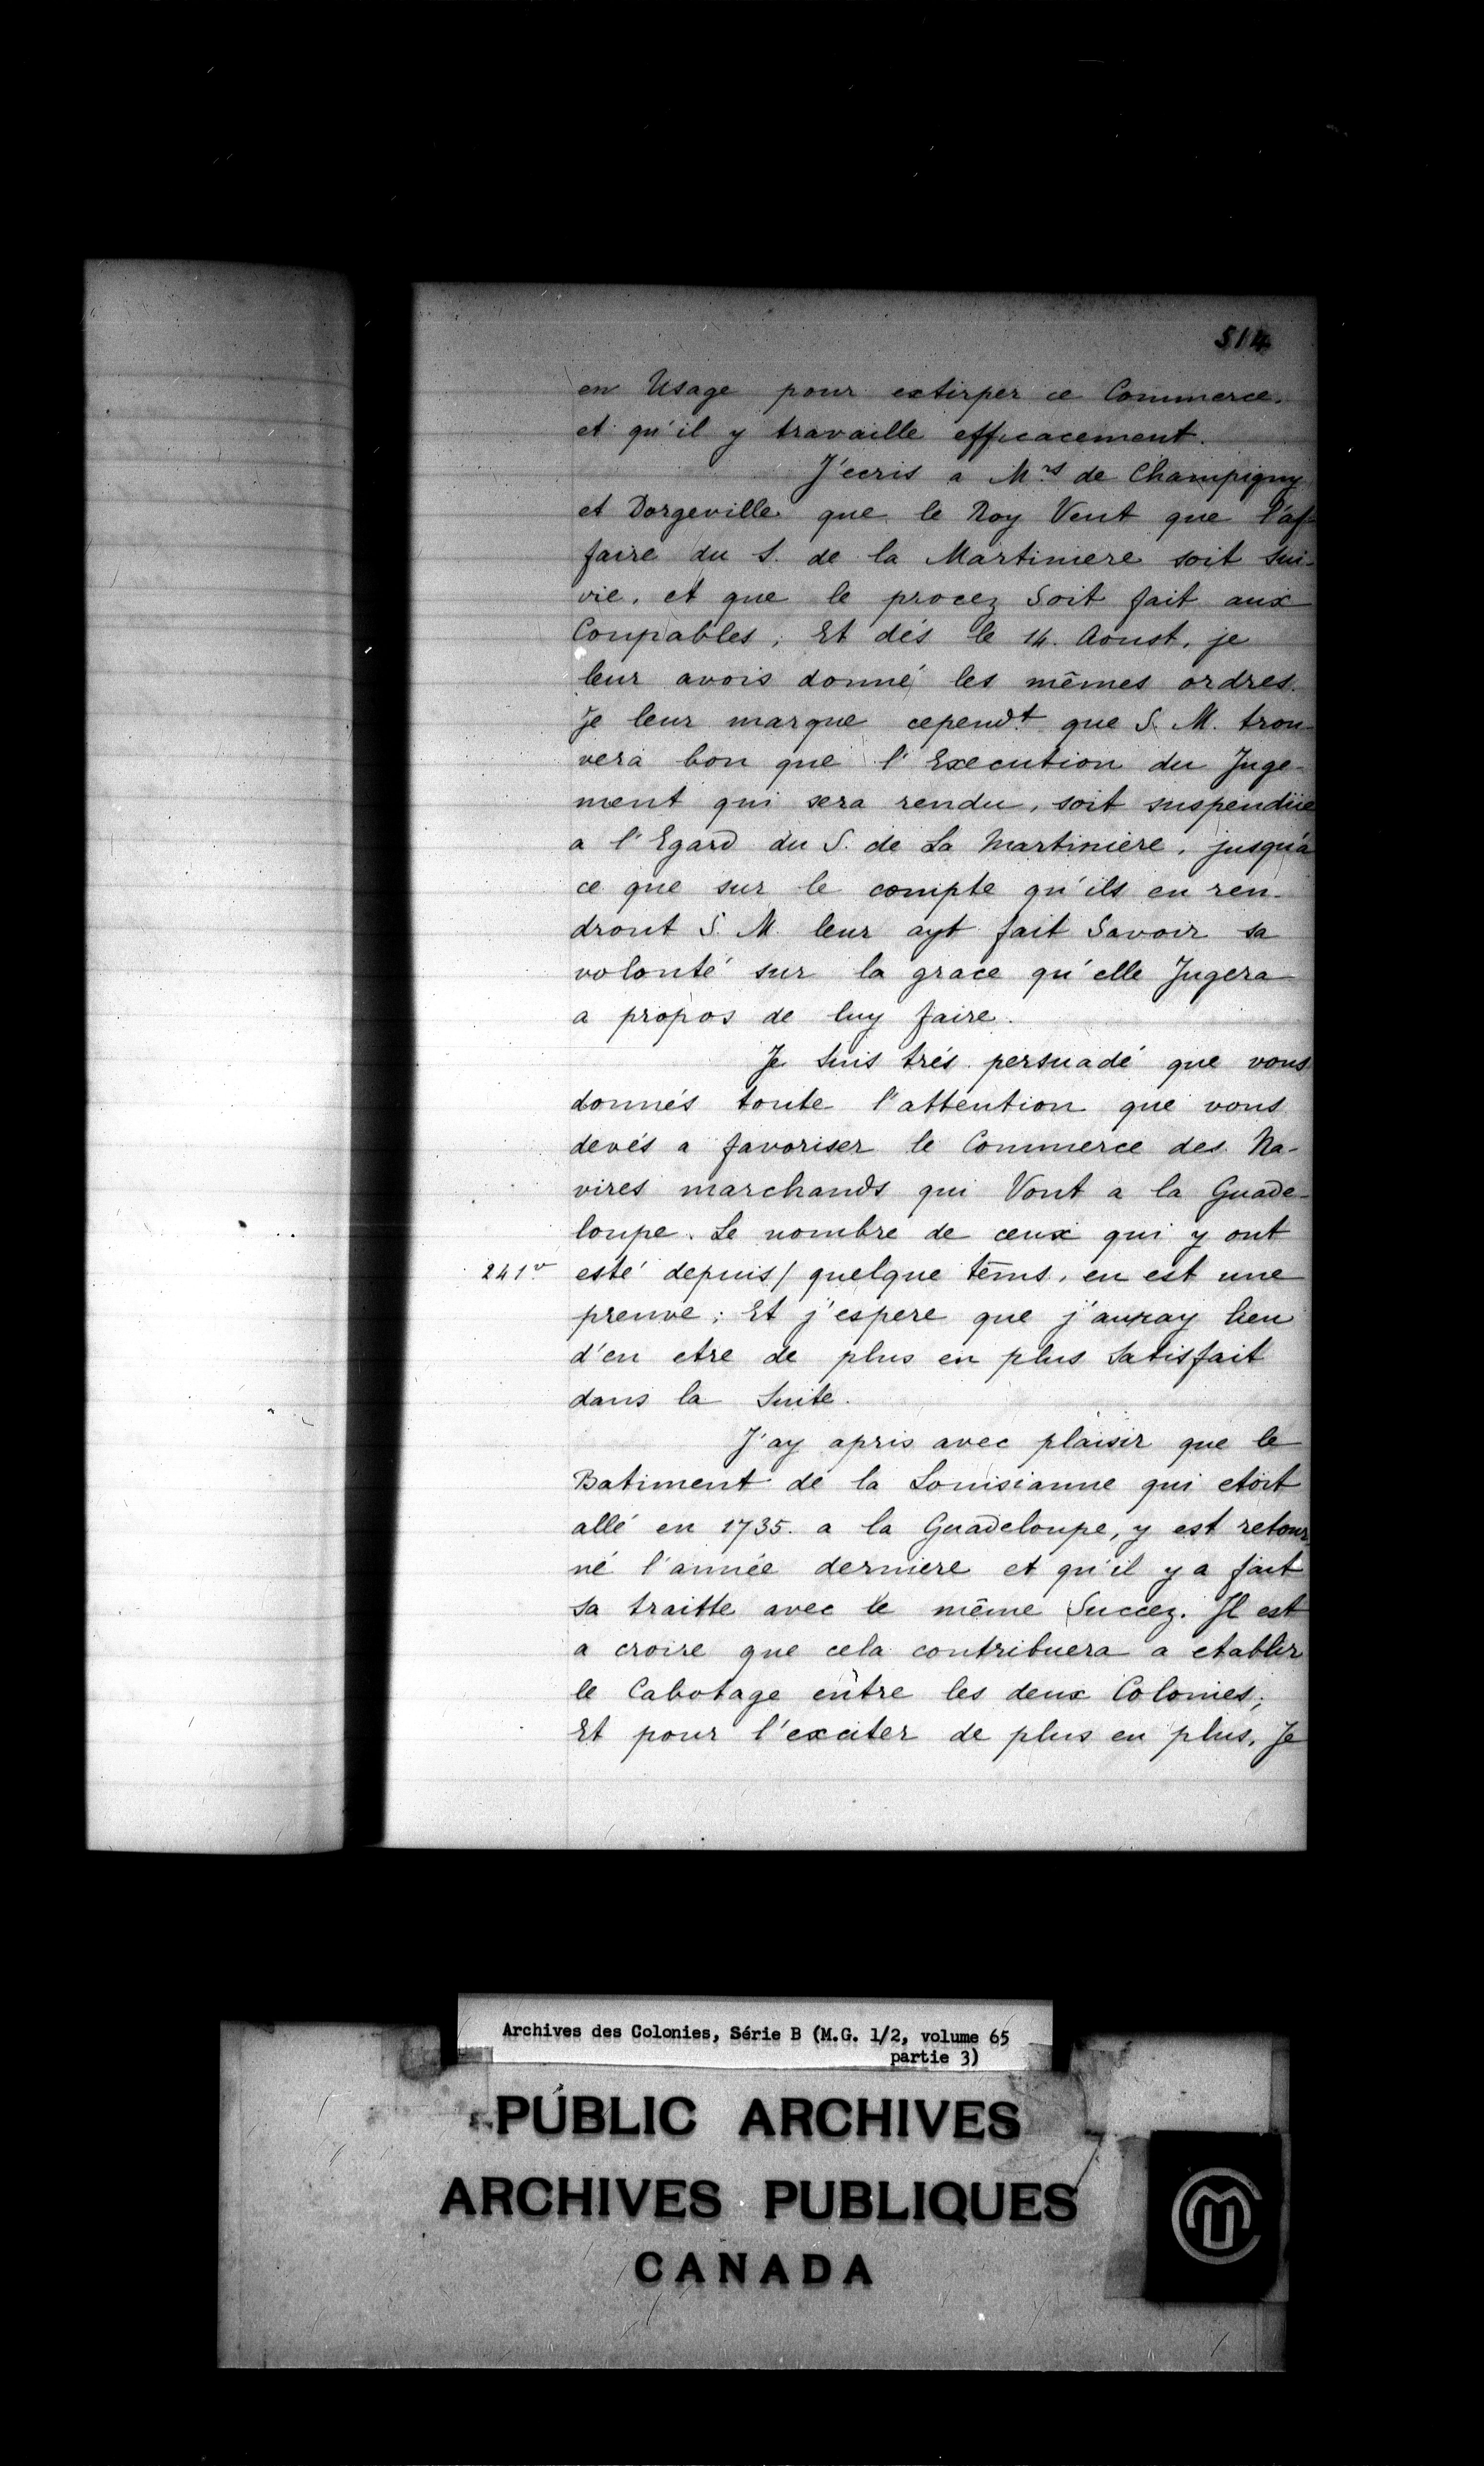 514
en Usage pour extirper ce Commerce.
et qu'il y travaille efficacement.
J'ecris a Mrs de Champigny
et Dorgeville que le Roy Veut que l'af-
faire du S. de la Martiniere soit sui-
vie, et que le procez Soit fait aux
Coupables; Et dés le 14. Aoust, je
leur avois donné les mêmes ordres.
Je leur marque cependt que S. M. trou-
vera bon que l'Execution du Juge-
ment qui sera rendu, soit suspendüe
a l'Egard du S. de La Martiniere, jusqu'a
ce que sur le compte qu'ils en ren-
dront S. M. leur ayt fait Savoir sa
volonté sur la grace qu'elle Jugera
a propos de luy faire.
Je suis trés persuadé que vous
donnés toute l'attention que vous
devés a favoriser le Commerce des Na-
vires marchands qui Vont a la Guade-
loupe. Le nombre de ceux qui y ont
241v esté depuis/ quelque tems, en est une
preuve; Et j'espere que j'auray lieu
d'en etre de plus en plus Satisfait
dans la Suite.
J'ay apris avec plaisir que le
Batiment de la Louisianne qui etoit
allé en 1735. a la Guadeloupe, y est retour-
né l'année derniere et qu'il y a fait
sa traitte avec le même Succez. Il est
a croire que cela contribuera a etablir
le Cabotage entre les deux Colonies;
Et pour l'exciter de plus en plus, Je
Archives des Colonies, Série B (M.G. 1/2, volume 65
partie 3)
PUBLIC ARCHIVES
ARCHIVES PUBLIQUES
CANADA